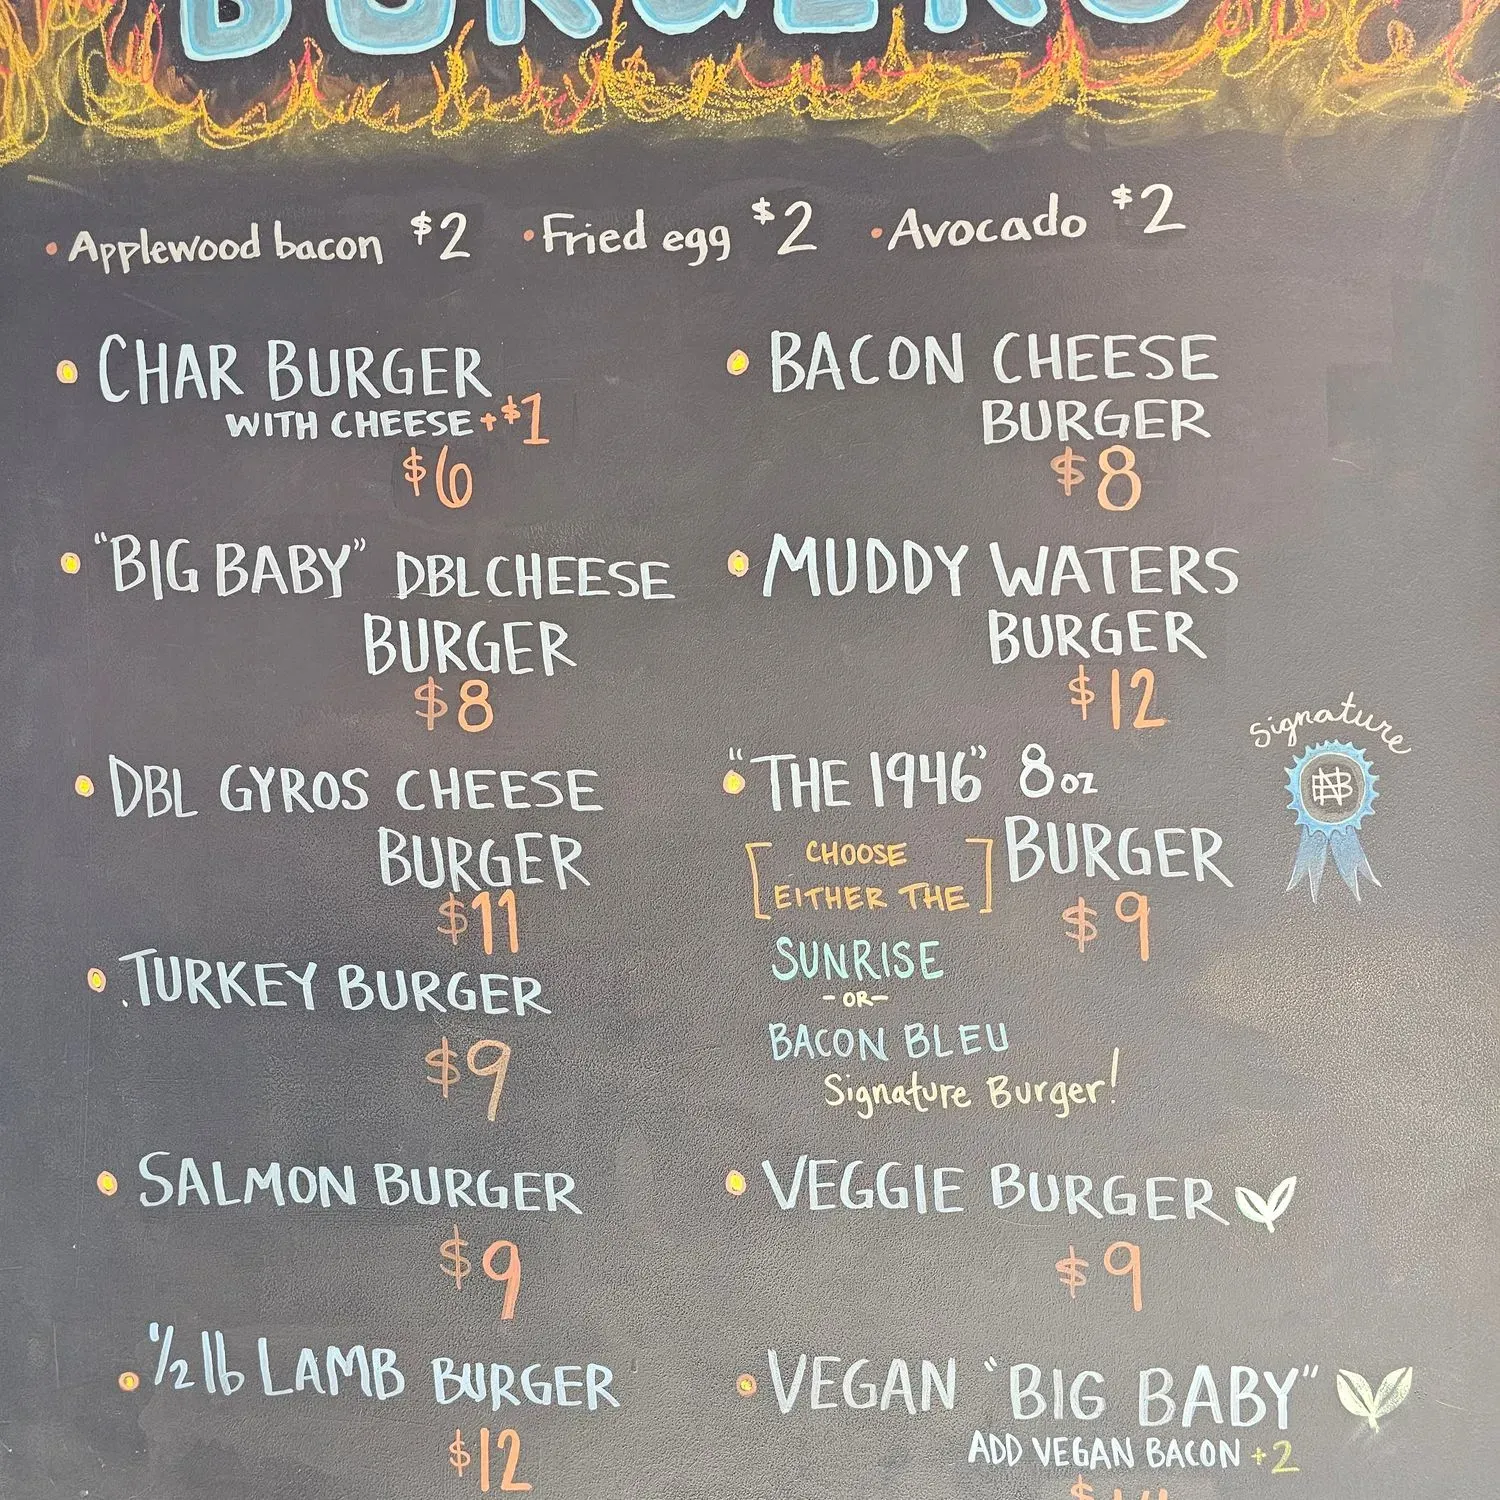 BURGERS
• Applewood bacon $2 • Fried egg $2 • Avocado $2
CHAR BURGER
WITH CHEESE +$1
$6
"BIG BABY" DBL CHEESE
BURGER
$8
DBL GYROS CHEESE
BURGER
$11
TURKEY BURGER
$9
SALMON BURGER
$9
1/2 lb LAMB BURGER
$12
BACON CHEESE
BURGER
$8
MUDDY WATERS
BURGER
$12
"THE 1946" 8oz
BURGER
$9
[CHOOSE
EITHER THE]
SUNRISE
-OR-
BACON BLEU
Signature Burger!
Signature
VEGGIE BURGER
$9
VEGAN "BIG BABY"
ADD VEGAN BACON +2